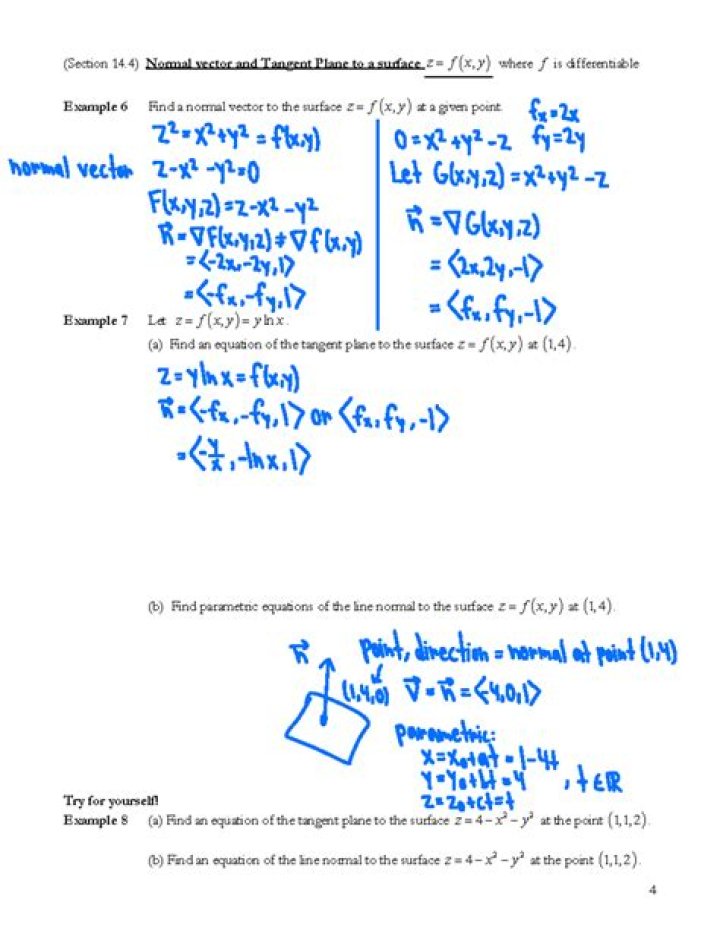 (Section 14.4) Normal vector and Tangent Plane to a surface z = f(x,y) where f is differentiable
Example 6 Find a normal vector to the surface z = f(x,y) at a given point.
fx = 2x
fy = 2y
normal vector
z² = x² + y² = f(x,y)
z - x² - y² = 0
F(x,y,z) = z - x² - y²
n⃗ = ∇F(x,y,z) ≠ ∇f(x,y)
= <-2x, -2y, 1>
= <-fx, -fy, 1>
0 = x² + y² - z
Let G(x,y,z) = x² + y² - z
n⃗ = ∇G(x,y,z)
= <2x, 2y, -1>
= <fx, fy, -1>
Example 7 Let z = f(x,y) = y ln x.
(a) Find an equation of the tangent plane to the surface z = f(x,y) at (1,4).
z = y ln x = f(x,y)
n⃗ = <-fx, -fy, 1> or <fx, fy, -1>
= <-y/x, -ln x, 1>
(b) Find parametric equations of the line normal to the surface z = f(x,y) at (1,4).
n⃗
point, direction = normal at point (1,4)
(1,4,0) v⃗ = n⃗ = <-4,0,1>
parametric:
x = x₀ + at = 1 - 4t
y = y₀ + bt = 4 , t ∈ ℝ
z = z₀ + ct = t
Try for yourself!
Example 8 (a) Find an equation of the tangent plane to the surface z = 4 - x² - y² at the point (1,1,2).
(b) Find an equation of the line normal to the surface z = 4 - x² - y² at the point (1,1,2).
4